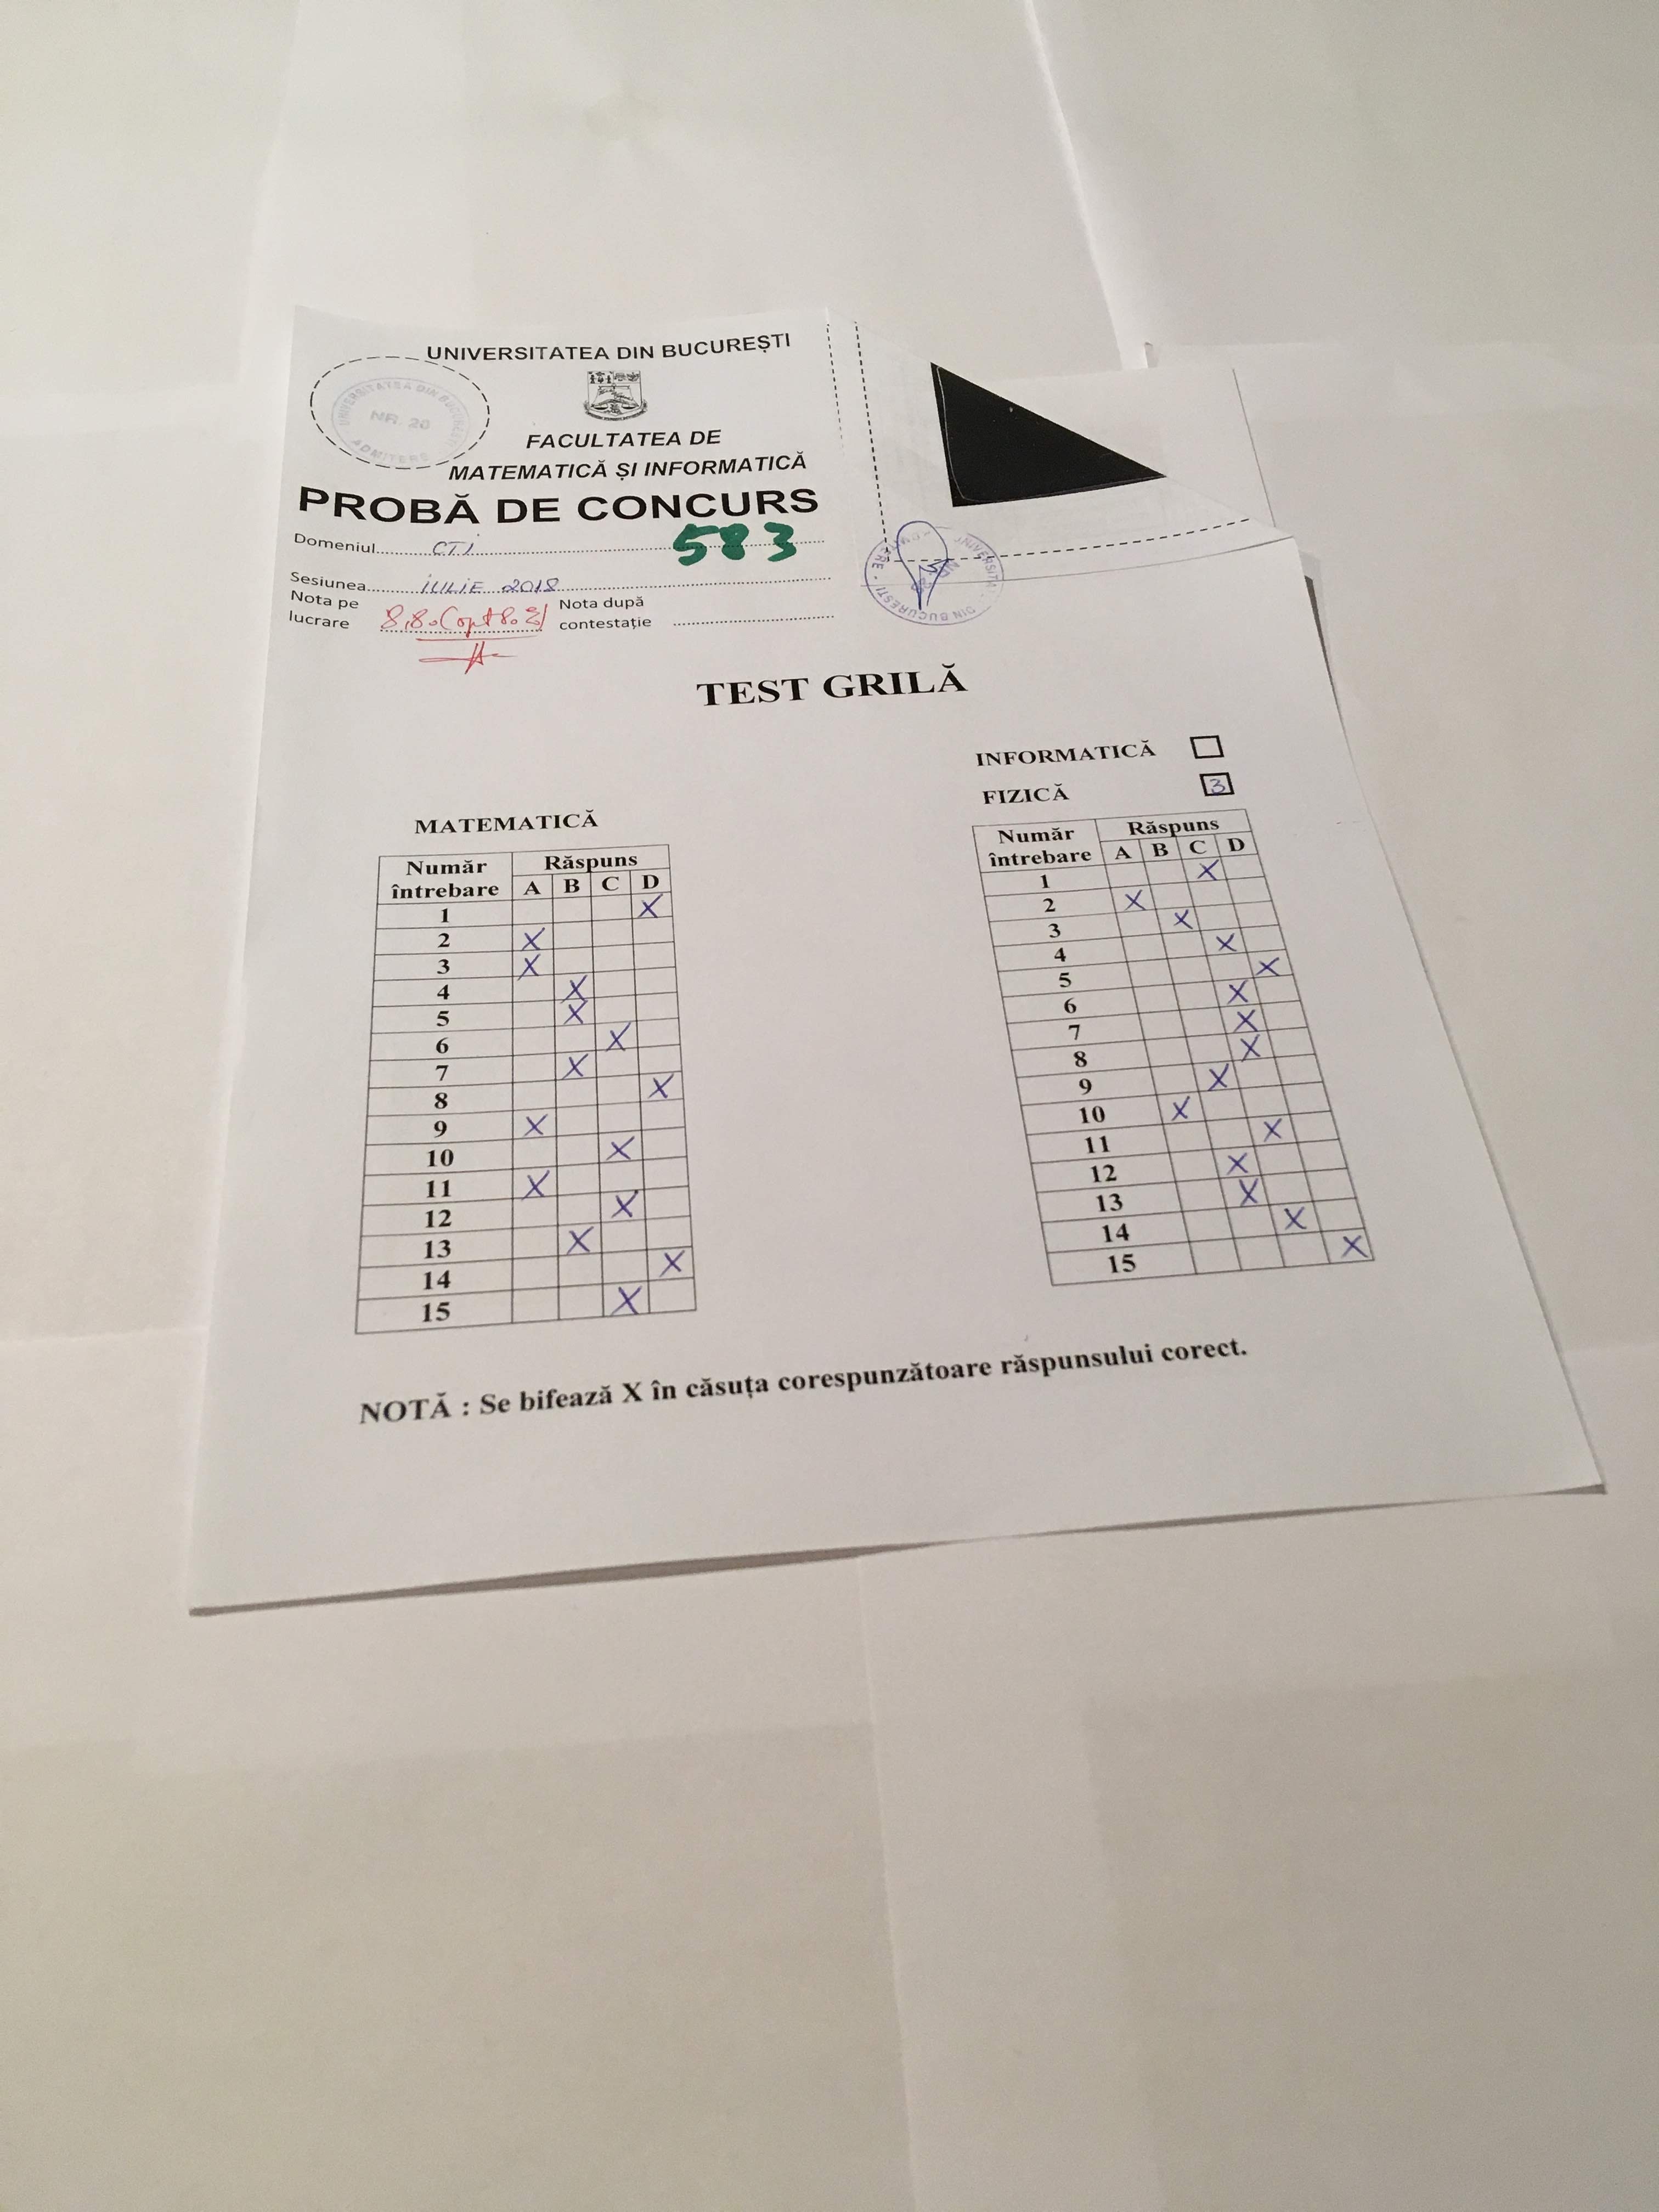 UNIVERSITATEA DIN BUCUREȘTI
UNIVERSITATEA DIN BUCUREȘTI
NR. 20
ADMITERE
FACULTATEA DE
MATEMATICĂ ȘI INFORMATICĂ
PROBĂ DE CONCURS
Domeniul CTI 583
Sesiunea IULIE 2018
Nota pe lucrare 8,80 (opt 80%)
Nota după contestație
UNIVERSITATEA DIN BUCUREȘTI
TEST GRILĂ
INFORMATICĂ
FIZICĂ 3
MATEMATICĂ
Număr întrebare Răspuns
A B C D
1 X
2 X
3 X
4 X
5 X
6 X
7 X
8 X
9 X
10 X
11 X
12 X
13 X
14 X
15 X
Număr întrebare Răspuns
A B C D
1 X
2 X
3 X
4 X
5 X
6 X
7 X
8 X
9 X
10 X
11 X
12 X
13 X
14 X
15 X
NOTĂ : Se bifează X în căsuța corespunzătoare răspunsului corect.